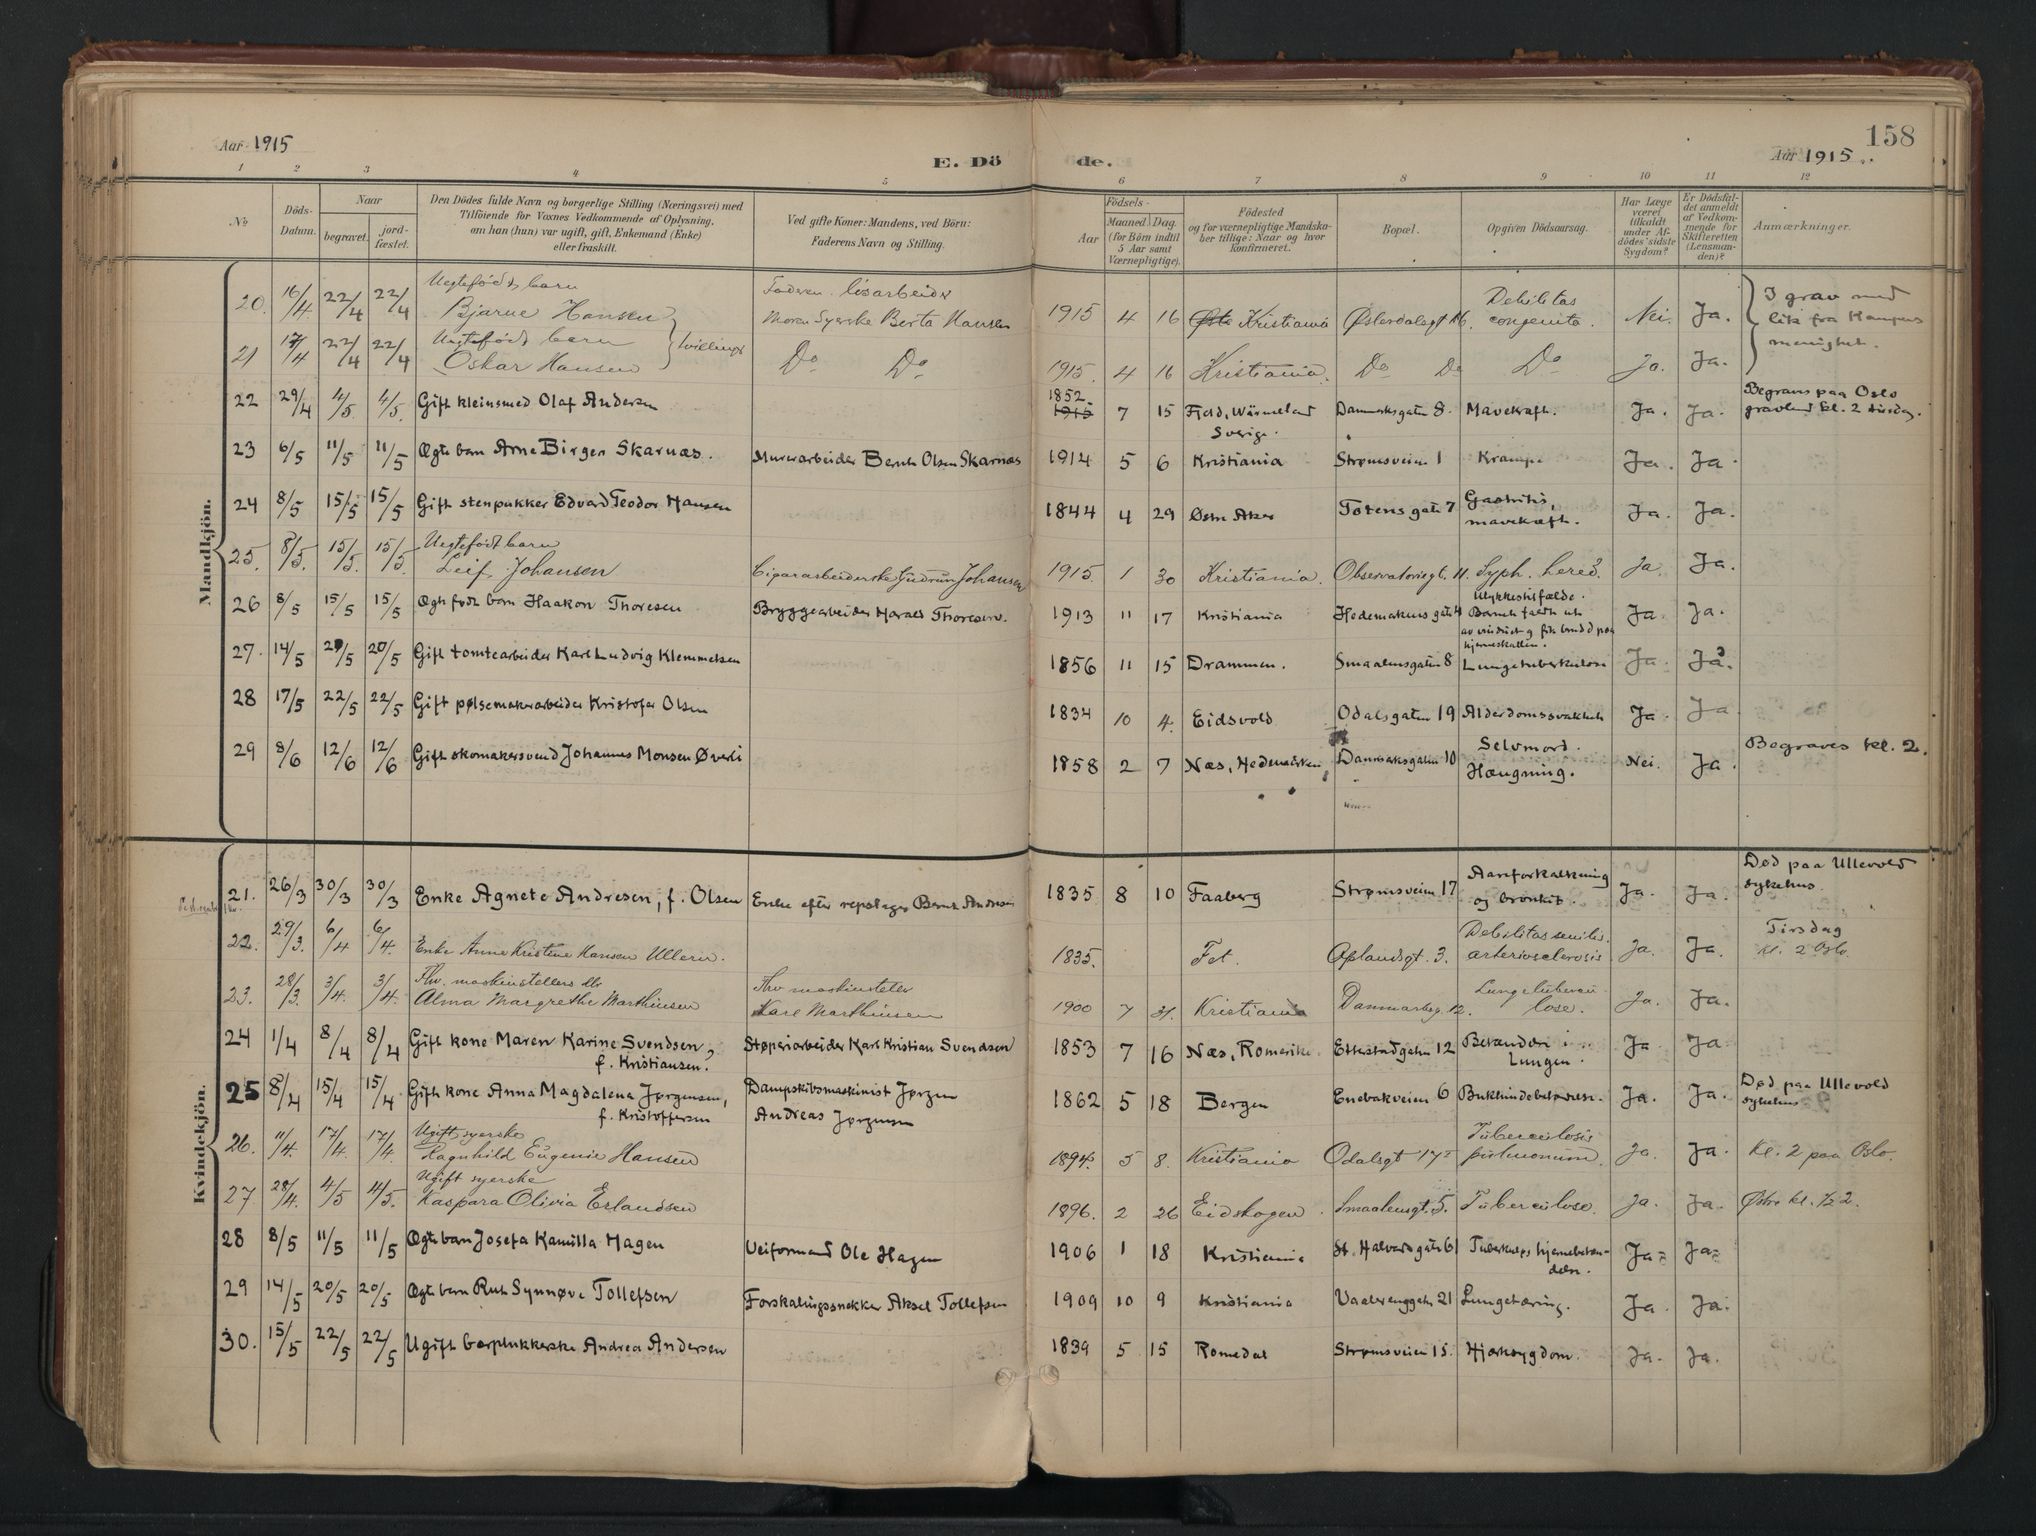 Aar 1915
E. Dö
de.
158
Aar 1915.
1 2 3 4 5 6 7 8 9 10 11 12
No
Döds-
Datum.
Naar
begravet.
jord-
fæstet.
Den Dödes fulde Navn og borgerlige Stilling (Næringsvei) med
Tilföiende for Voxnes Vedkommende af Oplysning.
om han (hun) var ugift, gift, Enkemand (Enke)
eller fraskilt.
Ved gifte Koner: Mandens, ved Börn:
Faderens Navn og Stilling.
Födsels-
Aar
Maaned Dag.
(for Börn indtil
5 Aar samt
Værnepligtige).
Födested
og for værnepligtige Mandska-
ber tillige: Naar og hvor
konfirmeret.
Bopæl.
Opgiven Dödsaarsag.
Har Læge
været
tilkaldt
under Af-
dödes' sidste
Sygdom?
Er Dödsfal-
det anmeldt
af Vedkom-
mende for
Skifteretten
(Lensman-
den)?
Anmærkninger.
Mandkjön.
20. 16/4. 22/4 22/4 Uegtefødt barn
Bjarne Hansen Faderen lisarbeider
Moren Syerske Berta Hansen 1915 4 16 Kristiania Østerdalsgt 16. Debilitas
congenita. Nei. Ja. I grav med
lik fra Kampens
menighet.
21 17/4 22/4 22/4 Uegtefødt barn
Oskar Hansen tvillinger Do Do 1915. 4 16 Kristiania. Do Do Do Ja. Ja.
22 29/4 4/5. 4/5. Gift kleinsmed Olaf Andersen 1852
1915 7 15 Fjeld, Wärmeland
Sverige. Danmarksgaten 8. Mavekræft. Ja. Ja. Begraves paa Oslo
gravlund kl. 2 tirsdag.
23 6/5 11/5 11/5 Ægte barn Arne Birger Skarnæs. Murerarbeider Bernh. Olsen Skarnæs 1914 5 6 Kristiania Strømsveien 1 Krampe Ja. Ja.
24 8/5 15/5 15/5 Gift stenpukker Edvard Teodor Hansen 1844 4 29 Østre Aker Totens gate 7 Gastritis,
mavekræft. Ja. Ja.
25. 8/5. 15/5. 15/5. Uegtefødt barn
Leif Johansen Cigararbeiderske Gudrun Johansen 1915. 1 30 Kristiania. Observatoriegt. 11. Syph. hered. Ja. Ja.
26 8/5 15/5 15/5 Ægte født barn Haakon Thoresen Bryggearbeider Harald Thoresen. 1913 11 17 Kristiania Hedemarkens gate 4 Ulykkestilfælde.
Barnet faldt ut
av vinduet og fik brudd paa
hjerneskallen. Ja. Ja.
27. 14/5 20/5 20/5 Gift tomtearbeider Karl Ludvig Klemmetsen 1856 11 15 Drammen. Smaalensgaten 8 Lungetuberkulose Ja. Ja.
28 17/5 22/5 22/5 Gift pølsemakerarbeider Kristofer Olsen 1834 10 4. Eidsvold Odalsgaten 19 Alderdomssvakhet Ja. Ja
29 8/6 12/6 12/6 Gift skomakersvend Johannes Monsen Øverli 1858 2 7 Næs, Hedemarken Danmarksgaten 10 Selvmord.
Hængning. Nei. Ja. Begraves kl. 2.
Kvindekjön.
21. 26/3 30/3 30/3 Enke Agnete Andresen, f. Olsen Enke efter repslager Bernh. Andresen 1835 8 10 Faaberg Strømsveien 17 Aareforkalkning
og bronkit. Ja. Ja. Død paa Ullevold
sykehus.
22. 29/3. 6/4 6/4. Enke Anne Kristine Hansen Ullern. 1835. Fet. Oplandsgt. 3. Debilitas senilis.
arteriosclerosis Ja. Ja. Tirsdag
kl. 2 Oslo.
23. 28/3. 3/4. 3/4. Fhv. maskinstellers dtr
Alma Margrethe Marthinsen Fhv maskinsteller
Karl Marthinsen 1900 7 31. Kristiania Danmarksg. 12. Lungetuberku
lose. Ja. Ja.
24 1/4 8/4 8/4 Gift kone Maren Karine Svendsen,
f. Kristiansen. Støperiarbeider Karl Kristian Svendsen 1853 7 16 Næs, Romerike Etterstadgaten 12 Betændelse i
Lungen. Ja Ja
25 8/4 15/4 15/4 Gift kone Anna Magdalena Jørgensen,
f. Kristoffersen Dampskibsmaskinist Jørgen
Andreas Jørgensen 1862 5 18 Bergen Enebakveien 6 Bukhindebetændelse. Ja. Ja. Død paa Ullevold
sykehus
26. 11/4. 17/4. 17/4. Ugift syerske
Ragnhild Eugenie Hansen 1894. 5 8. Kristiania Odalsgt 17 Tuberculosis
pulmonum. Ja. Ja. Kl. 2 paa Oslo.
27 28/4. 4/5 4/5. Ugift syerske
Kaspara Olivia Erlandsen 1896. 2 26 Eidskogen. Smaalensgt. 5. Tuberculose. Ja. Ja. Østre kl. 1/2 2.
28 8/5 11/5 11/5 Ægte barn Josefa Kamilla Hagen Veiformand Ole Hagen 1906 1 18 Kristiania St. Halvards gate 61 Tuberkuløs hjernebetæn-
delse. Ja Ja
29 14/5 20/5 20/5 Ægte barn Ruth Synnøve Tollefsen Forskalingssnekker Aksel Tollefsen 1909 10 9 Kristiania Vaalerenggaten 21 Lungetæring. Ja. Ja.
30. 15/5 22/5 22/5 Ugift bærplukkerske Andrea Andersen 1839 5 15 Romedal Strømsveien 15. Hjertesygdom. Ja. Ja.